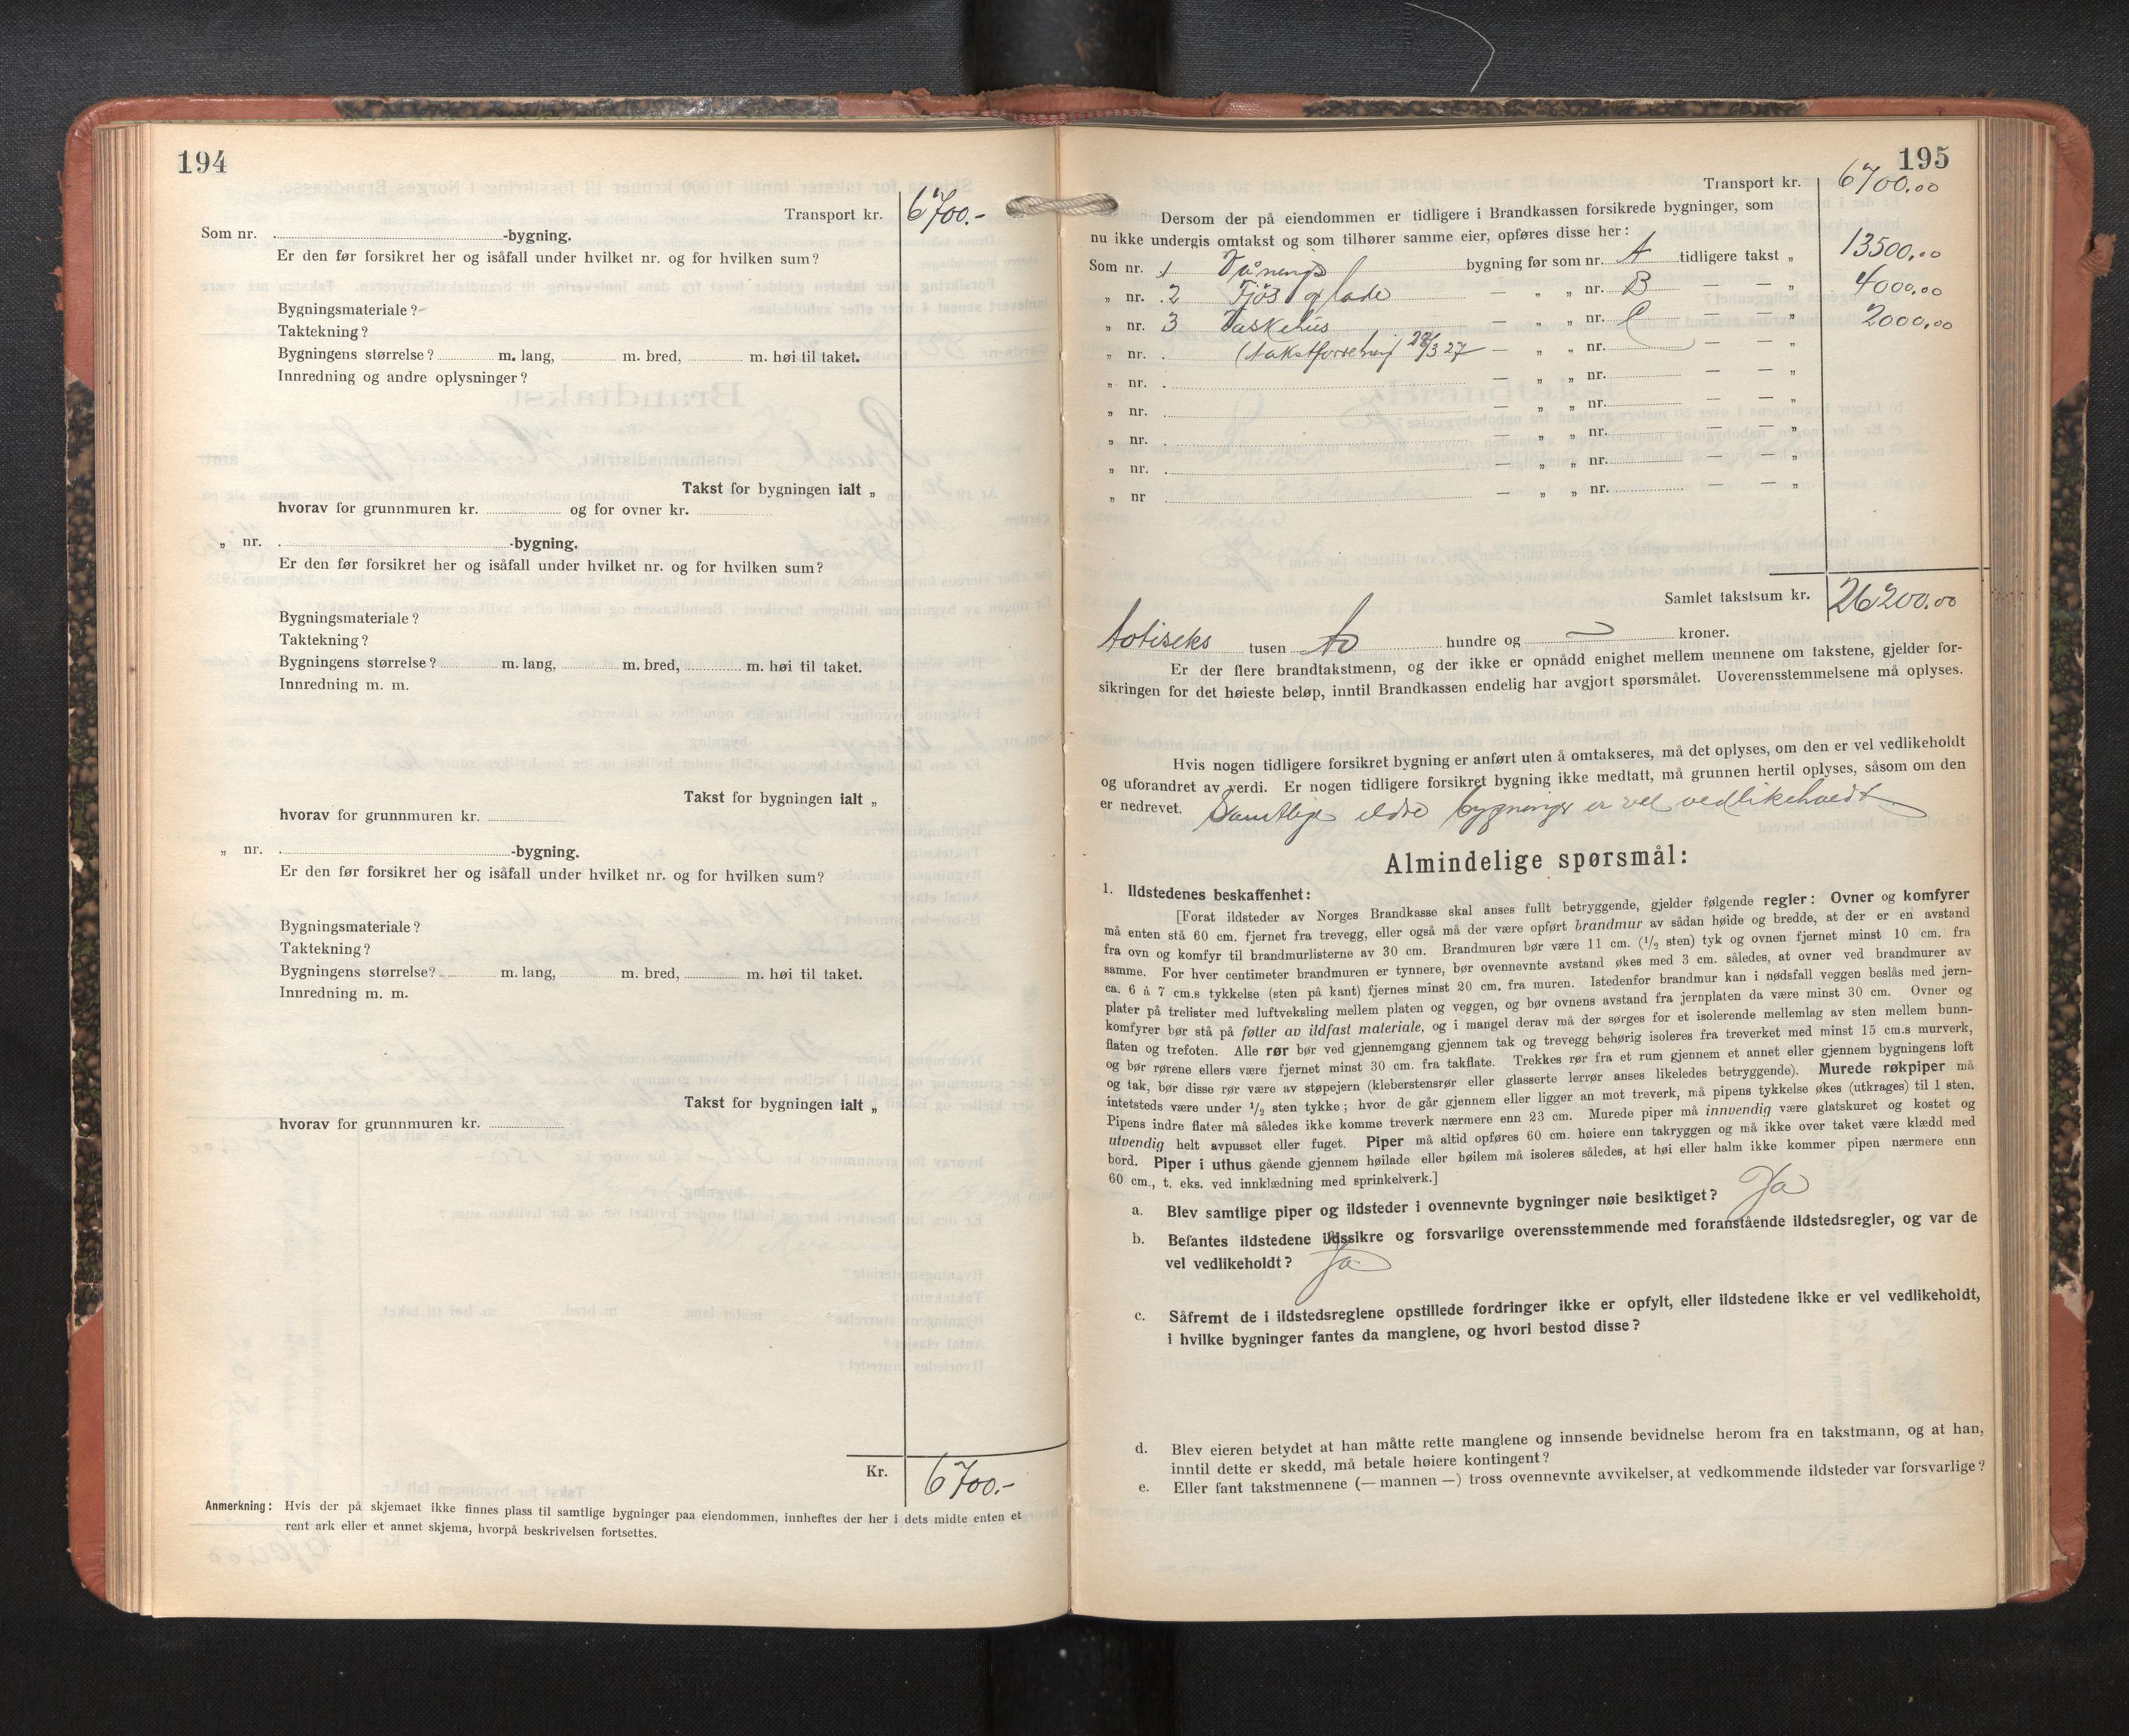 194
Transport kr. 6700.-
Som nr. -bygning.
Er den før forsikret her og isåfall under hvilket nr. og for hvilken sum?
Bygningsmateriale?
Taktekning?
Bygningens størrelse? m. lang, m. bred, m. høi til taket.
Innredning og andre oplysninger?
Takst for bygningen ialt „
hvorav for grunnmuren kr. og for ovner kr.
„ nr. -bygning.
Er den før forsikret her og isåfall under hvilket nr. og for hvilken sum?
Bygningsmateriale?
Taktekning?
Bygningens størrelse? m. lang, m. bred, m. høi til taket.
Innredning m. m.
Takst for bygningen ialt „
hvorav for grunnmuren kr.
„ nr. -bygning.
Er den før forsikret her og isåfall under hvilket nr. og for hvilken sum?
Bygningsmateriale?
Taktekning?
Bygningens størrelse? m. lang, m. bred, m. høi til taket.
Innredning m. m.
Takst for bygningen ialt „
hvorav for grunnmuren kr.
Kr. 6700.-
Anmerkning: Hvis der på skjemaet ikke finnes plass til samtlige bygninger paa eiendommen, innheftes der her i dets midte enten et
rent ark eller et annet skjema, hvorpå beskrivelsen fortsettes.
195
Transport kr. 6700.00
Dersom der på eiendommen er tidligere i Brandkassen forsikrede bygninger, som
nu ikke undergis omtakst og som tilhører samme eier, opføres disse her:
Som nr. 1 Vånings bygning før som nr. A tidligere takst „ 13500.00
„ nr. 2 Fjøs og lade — „ „ nr. B — — „ 4000.00
„ nr. 3 Vaskehus — „ „ nr. C — — „ 2000.00
„ nr. (takstforretning 28/3 27 — „ „ nr. — — „
„ nr. — „ „ nr. — — „
„ nr. — „ „ nr. — — „
„ nr. — „ „ nr. — — „
„ nr. — „ „ nr. — — „
„ nr — „ „ nr. — — „
Samlet takstsum kr. 26200.00
totiseks tusen to hundre og — kroner.
Er der flere brandtakstmenn, og der ikke er opnådd enighet mellem mennene om takstene, gjelder for-
sikringen for det høieste beløp, inntil Brandkassen endelig har avgjort spørsmålet. Uoverensstemmelsene må oplyses.
Hvis nogen tidligere forsikret bygning er anført uten å omtakseres, må det oplyses, om den er vel vedlikeholdt
og uforandret av verdi. Er nogen tidligere forsikret bygning ikke medtatt, må grunnen hertil oplyses, såsom om den
er nedrevet. Samtlige eldre bygninger er vel vedlikeholdt
Almindelige spørsmål:
1. Ildstedenes beskaffenhet:
[Forat ildsteder av Norges Brandkasse skal anses fullt betryggende, gjelder følgende regler: Ovner og komfyrer
må enten stå 60 cm. fjernet fra trevegg, eller også må der være opført brandmur av sådan høide og bredde, at der er en avstand
fra ovn og komfyr til brandmurlisterne av 30 cm. Brandmuren bør være 11 cm. (1/2 sten) tyk og ovnen fjernet minst 10 cm. fra
samme. For hver centimeter brandmuren er tynnere, bør ovennevnte avstand økes med 3 cm. således, at ovner ved brandmurer av
ca. 6 à 7 cm.s tykkelse (sten på kant) fjernes minst 20 cm. fra muren. Istedenfor brandmur kan i nødsfall veggen beslås med jern-
plater på trelister med luftveksling mellem platen og veggen, og bør ovnens avstand fra jernplaten da være minst 30 cm. Ovner og
komfyrer bør stå på føtter av ildfast materiale, og i mangel derav må der sørges for et isolerende mellemlag av sten mellem bunn-
flaten og trefoten. Alle rør bør ved gjennemgang gjennem tak og trevegg behørig isoleres fra treverket med minst 15 cm.s murverk,
og bør rørene ellers være fjernet minst 30 cm. fra takflate. Trekkes rør fra et rum gjennem et annet eller gjennem bygningens loft
og tak, bør disse rør være av støpejern (kleberstensrør eller glasserte lerrør anses likeledes betryggende). Murede røkpiper må
intetsteds være under 1/2 sten tykke; hvor de går gjennem eller ligger an mot treverk, må pipens tykkelse økes (utkrages) til 1 sten.
Pipens indre flater må således ikke komme treverk nærmere enn 23 cm. Murede piper må innvendig være glatskuret og kostet og
utvendig helt avpusset eller fuget. Piper må altid opføres 60 cm. høiere enn takryggen og må ikke over taket være klædd med
bord. Piper i uthus gående gjennem høilade eller høilem må isoleres således, at høi eller halm ikke kommer pipen nærmere enn
60 cm., t. eks. ved innklædning med sprinkelverk.]
a. Blev samtlige piper og ildsteder i ovennevnte bygninger nøie besiktiget? Ja
b. Befantes ildstedene ildssikre og forsvarlige overensstemmende med foranstående ildstedsregler, og var de
vel vedlikeholdt? Ja
c. Såfremt de i ildstedsreglene opstillede fordringer ikke er opfylt, eller ildstedene ikke er vel vedlikeholdt,
i hvilke bygninger fantes da manglene, og hvori bestod disse?
d. Blev eieren betydet at han måtte rette manglene og innsende bevidnelse herom fra en takstmann, og at han,
inntil dette er skedd, må betale høiere kontingent?
e. Eller fant takstmennene (— mannen —) tross ovennevnte avvikelser, at vedkommende ildsteder var forsvarlige?